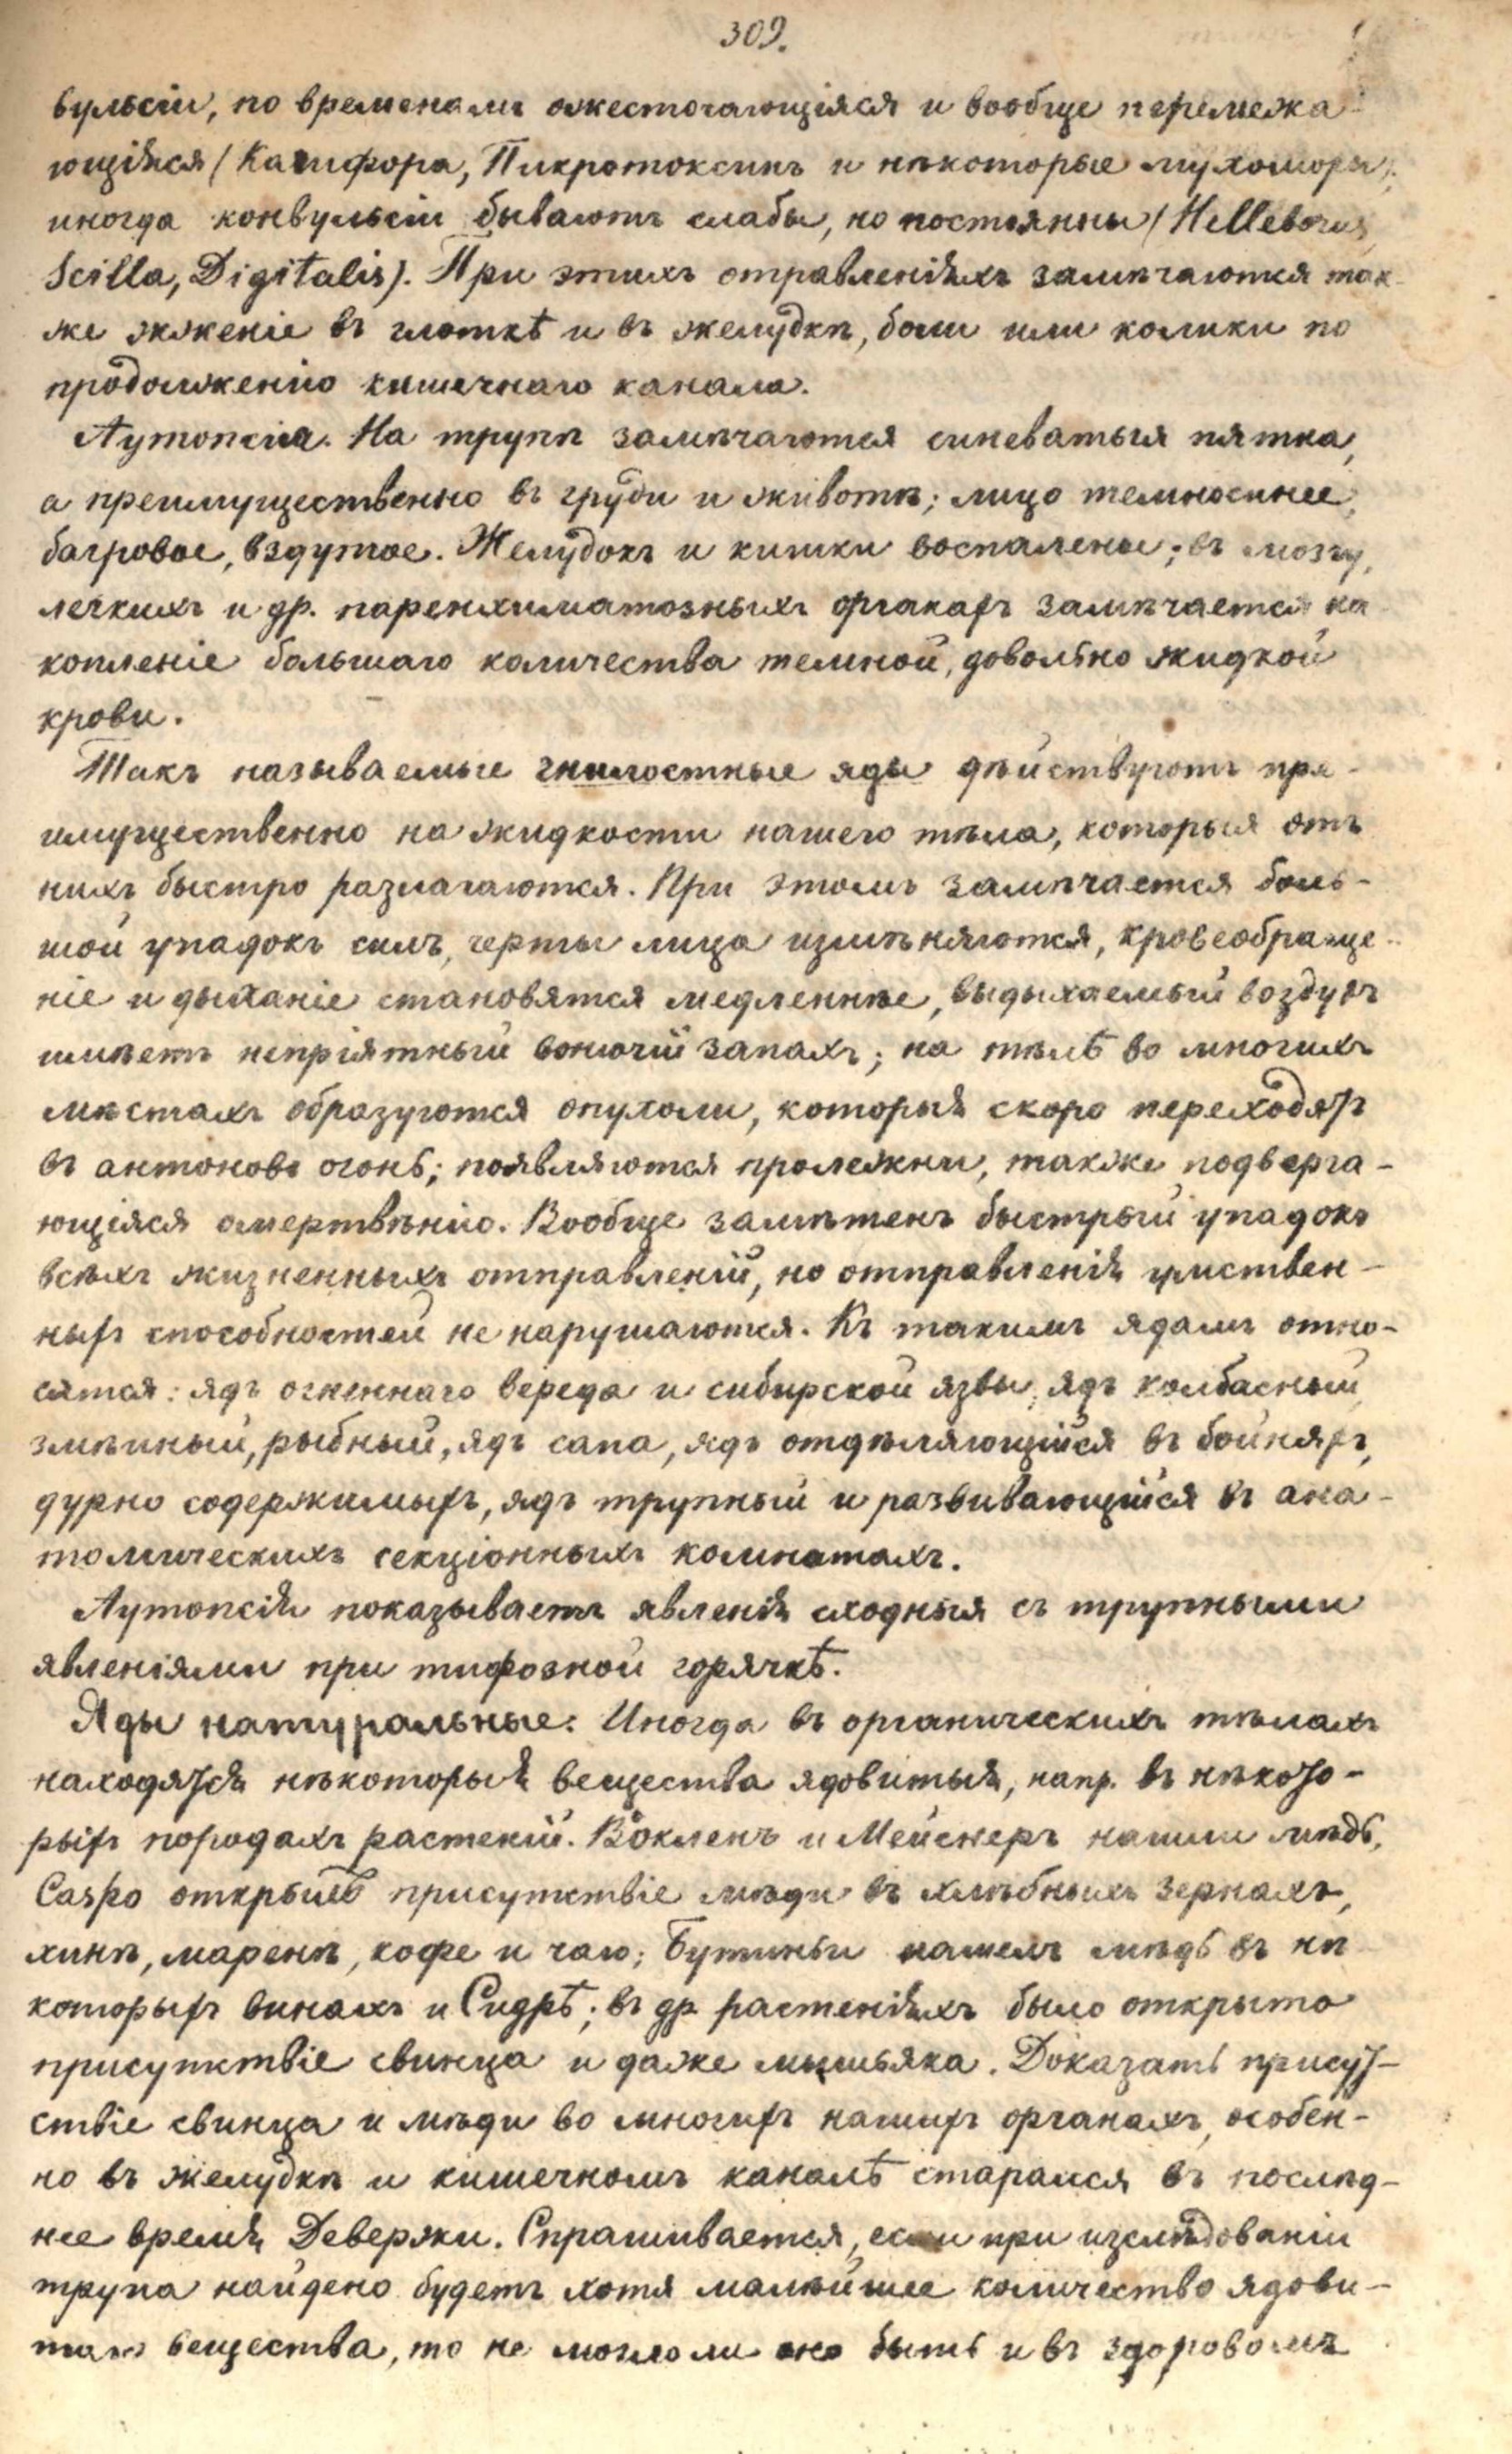 309.
вульсіи, по временамъ ожесточающіяся и вообще перемежа-
ющіяся (Камфора, Пикротоксинъ и нѣкоторые мухоморы);
иногда конвульсіи бываютъ слабы, но постоянны (Helleborus,
Scilla, Digitalis). При этихъ отравленіяхъ замѣчаются так-
же жженіе въ глоткѣ и въ желудкѣ, боли или колики по
продолженію кишечнаго канала.
Аутопсія. На трупѣ замѣчаются синеватыя пятна,
а преимущественно въ груди и животѣ; лицо темносинее,
багровое, вздутое. Желудокъ и кишки воспалены; въ мозгу,
легкихъ и др. паренхиматозныхъ органахъ замѣчается на
копленіе большаго количества темной, довольно жидкой
крови.
Такъ называемые гнилостные яды дѣйствуютъ пре-
имущественно на жидкости нашего тѣла, которыя отъ
нихъ быстро разлагаются. При этомъ замѣчается боль-
шой упадокъ силъ, черты лица измѣняются, кровеобраще-
ніе и дыханіе становятся медленнѣе, выдыхаемый воздухъ
имѣетъ непріятный вонючій запахъ; на тѣлѣ во многихъ
мѣстахъ образуются опухоли, которыя скоро переходятъ
въ антоновъ огонь; появляются пролежни, также подверга-
ющіяся омертвѣнію. Вообще замѣтенъ быстрый упадокъ
всѣхъ жизненныхъ отправленій, но отправленія умствен-
ныхъ способностей не нарушаются. Къ такимъ ядамъ отно-
сятся: ядъ огненнаго вереда и сибирской язвы, ядъ колбасный,
змѣиный, рыбный, ядъ сапа, ядъ отдѣляющійся въ бойняхъ,
дурно содержимыхъ, ядъ трупный и развивающійся въ ана-
томическихъ секціонныхъ комнатахъ.
Аутопсія показываетъ явленія сходныя съ трупными
явленіями при тифозной горячкѣ.
Яды натуральные. Иногда въ органическихъ тѣлахъ
находятся нѣкоторыя вещества ядовитыя, напр. въ нѣкото-
рыхъ породахъ растеній. Вокленъ и Мейснеръ нашли мѣдь,
Caspo открылъ присутствіе мѣди въ хлѣбныхъ зернахъ,
хинѣ, маренѣ, кофе и чаю; Бутиньи нашелъ мѣдь въ нѣ
которыхъ винахъ и Сидрѣ; въ др. растеніяхъ было открыто
присутствіе свинца и даже мышьяка. Доказать присут-
ствіе свинца и мѣди во многихъ нашихъ органахъ, особен-
но въ желудкѣ и кишечномъ каналѣ старался въ послѣд-
нее время Девержи. Спрашивается, если при изслѣдованіи
трупа найдено будетъ хотя малѣйшее количество ядови-
таго вещества, то не могло ли оно быть и въ здоровомъ